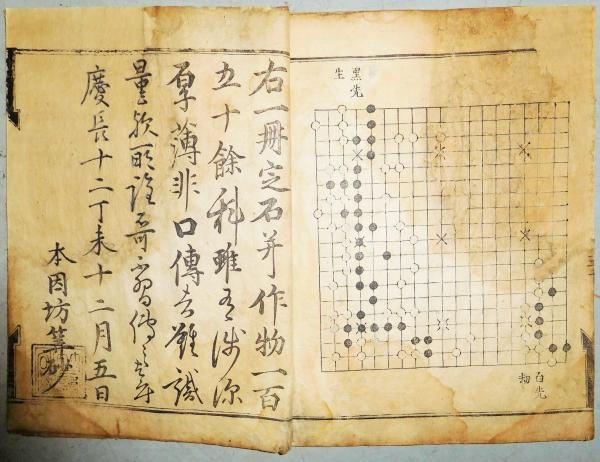 黑先
生
白先
劫
右一冊定石并作物一百
五十餘科雖有浅深
厚薄非口傳者難識
量欤 誰 不習傳之乎
慶長十二丁未十二月五日
本因坊算砂